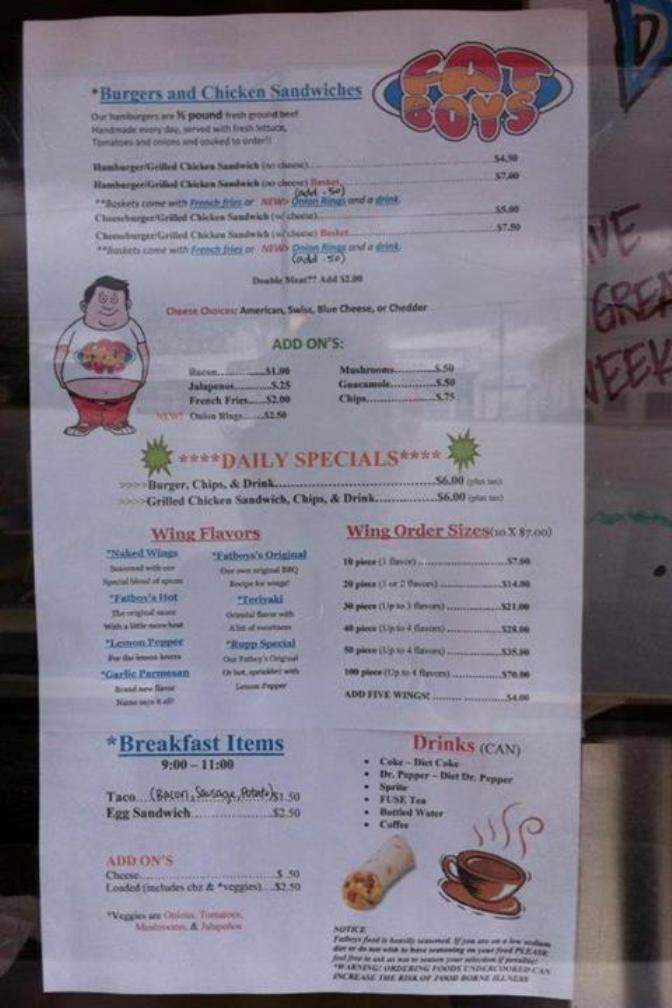 FAT
BOYS
*Burgers and Chicken Sandwiches
Our hamburgers are ½ pound fresh ground beef
Handmade every day, served with fresh lettuce,
Tomatoes and onions and cooked to order!!
Hamburger/Grilled Chicken Sandwich (no cheese)...$4.50
Hamburger/Grilled Chicken Sandwich (no cheese) Basket...$7.00
(add .50)
**Baskets come with French fries or NEW> Onion Rings and a drink.
Cheeseburger/Grilled Chicken Sandwich (w/ cheese)...$5.00
Cheeseburger/Grilled Chicken Sandwich (w/ cheese) Basket...$7.50
**Baskets come with French fries or NEW> Onion Rings and a drink.
(add .50)
Double Meat?? Add $2.00
Cheese Choices: American, Swiss, Blue Cheese, or Chedder
ADD ON'S:
Bacon...$1.00
Jalapenos...$.25
French Fries...$2.00
NEW! Onion Rings...$2.50
Mushrooms...$.50
Guacamole...$.50
Chips...$.75
****DAILY SPECIALS****
>>>>Burger, Chips, & Drink...$6.00 (plus tax)
>>>>Grilled Chicken Sandwich, Chips, & Drink...$6.00 (plus tax)
Wing Flavors
*Naked Wings
Seasoned with our
Special blend of spices
*Fatboy's Hot
The original sauce
With a little more heat
*Lemon Pepper
For the lemon lovers
*Garlic Parmesan
Brand new flavor
Name says it all!
*Fatboys's Original
Our own original BBQ
Recipe for wings!
*Teriyaki
Oriental flavor with
A hint of sweetness
*Rupp Special
Our Fatboy's Original
Or hot, sprinkled with
Lemon Pepper
Wing Order Sizes(10 X $7.00)
10 piece (1 flavor)...$7.00
20 piece (1 or 2 flavors)...$14.00
30 piece (Up to 3 flavors)...$21.00
40 piece (Up to 4 flavors)...$28.00
50 piece (Up to 4 flavors)...$35.00
100 piece (Up to 4 flavors)...$70.00
ADD FIVE WINGS!...$4.00
*Breakfast Items
9:00 – 11:00
Taco...(Bacon, Sausage, Potato)$1.50
Egg Sandwich...$2.50
ADD ON'S
Cheese...$ .50
Loaded (includes chz & *veggies)...$2.50
*Veggies are Onions, Tomatoes,
Mushrooms, & Jalapeños
Drinks (CAN)
• Coke – Diet Coke
• Dr. Pepper – Diet Dr. Pepper
• Sprite
• FUSE Tea
• Bottled Water
• Coffee
NOTICE
Fatboys food is heavily seasoned. If you are on a low sodium
diet or do not wish to have seasoning on your food PLEASE
feel free to ask us not to season your selection if possible!
*WARNING! ORDERING FOODS UNDERCOOKED CAN
INCREASE THE RISK OF FOOD BORNE ILLNESS
GREA
WEEK